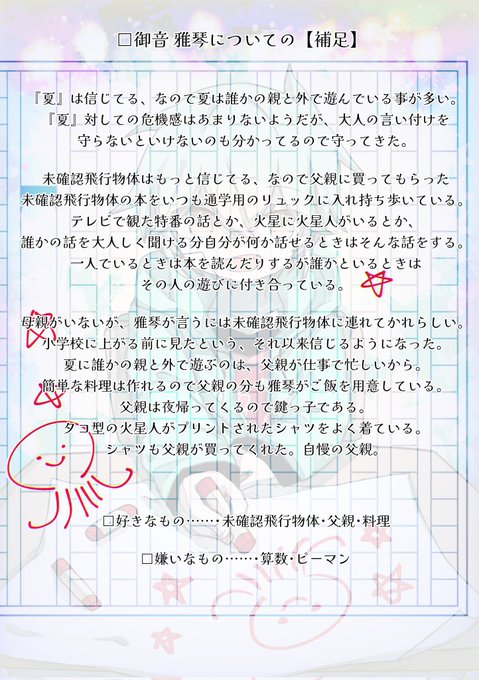 □御音 雅琴についての【補足】
『夏』は信じてる、なので夏は誰かの親と外で遊んでいる事が多い。
『夏』対しての危機感はあまりないようだが、大人の言い付けを
守らないといけないのも分かってるので守ってきた。
未確認飛行物体はもっと信じてる、なので父親に買ってもらった
未確認飛行物体の本をいつも通学用のリュックに入れ持ち歩いている。
テレビで観た特番の話とか、火星に火星人がいるとか、
誰かの話を大人しく聞ける分自分が何か話せるときはそんな話をする。
一人でいるときは本を読んだりするが誰かといるときは
その人の遊びに付き合っている。
母親がいないが、雅琴が言うには未確認飛行物体に連れてかれらしい。
小学校に上がる前に見たという、それ以来信じるようになった。
夏に誰かの親と外で遊ぶのは、父親が仕事で忙しいから。
簡単な料理は作れるので父親の分も雅琴がご飯を用意している。
父親は夜帰ってくるので鍵っ子である。
タコ型の火星人がプリントされたシャツをよく着ている。
シャツも父親が買ってくれた。自慢の父親。
□好きなもの……･未確認飛行物体･父親･料理
□嫌いなもの……･算数･ピーマン